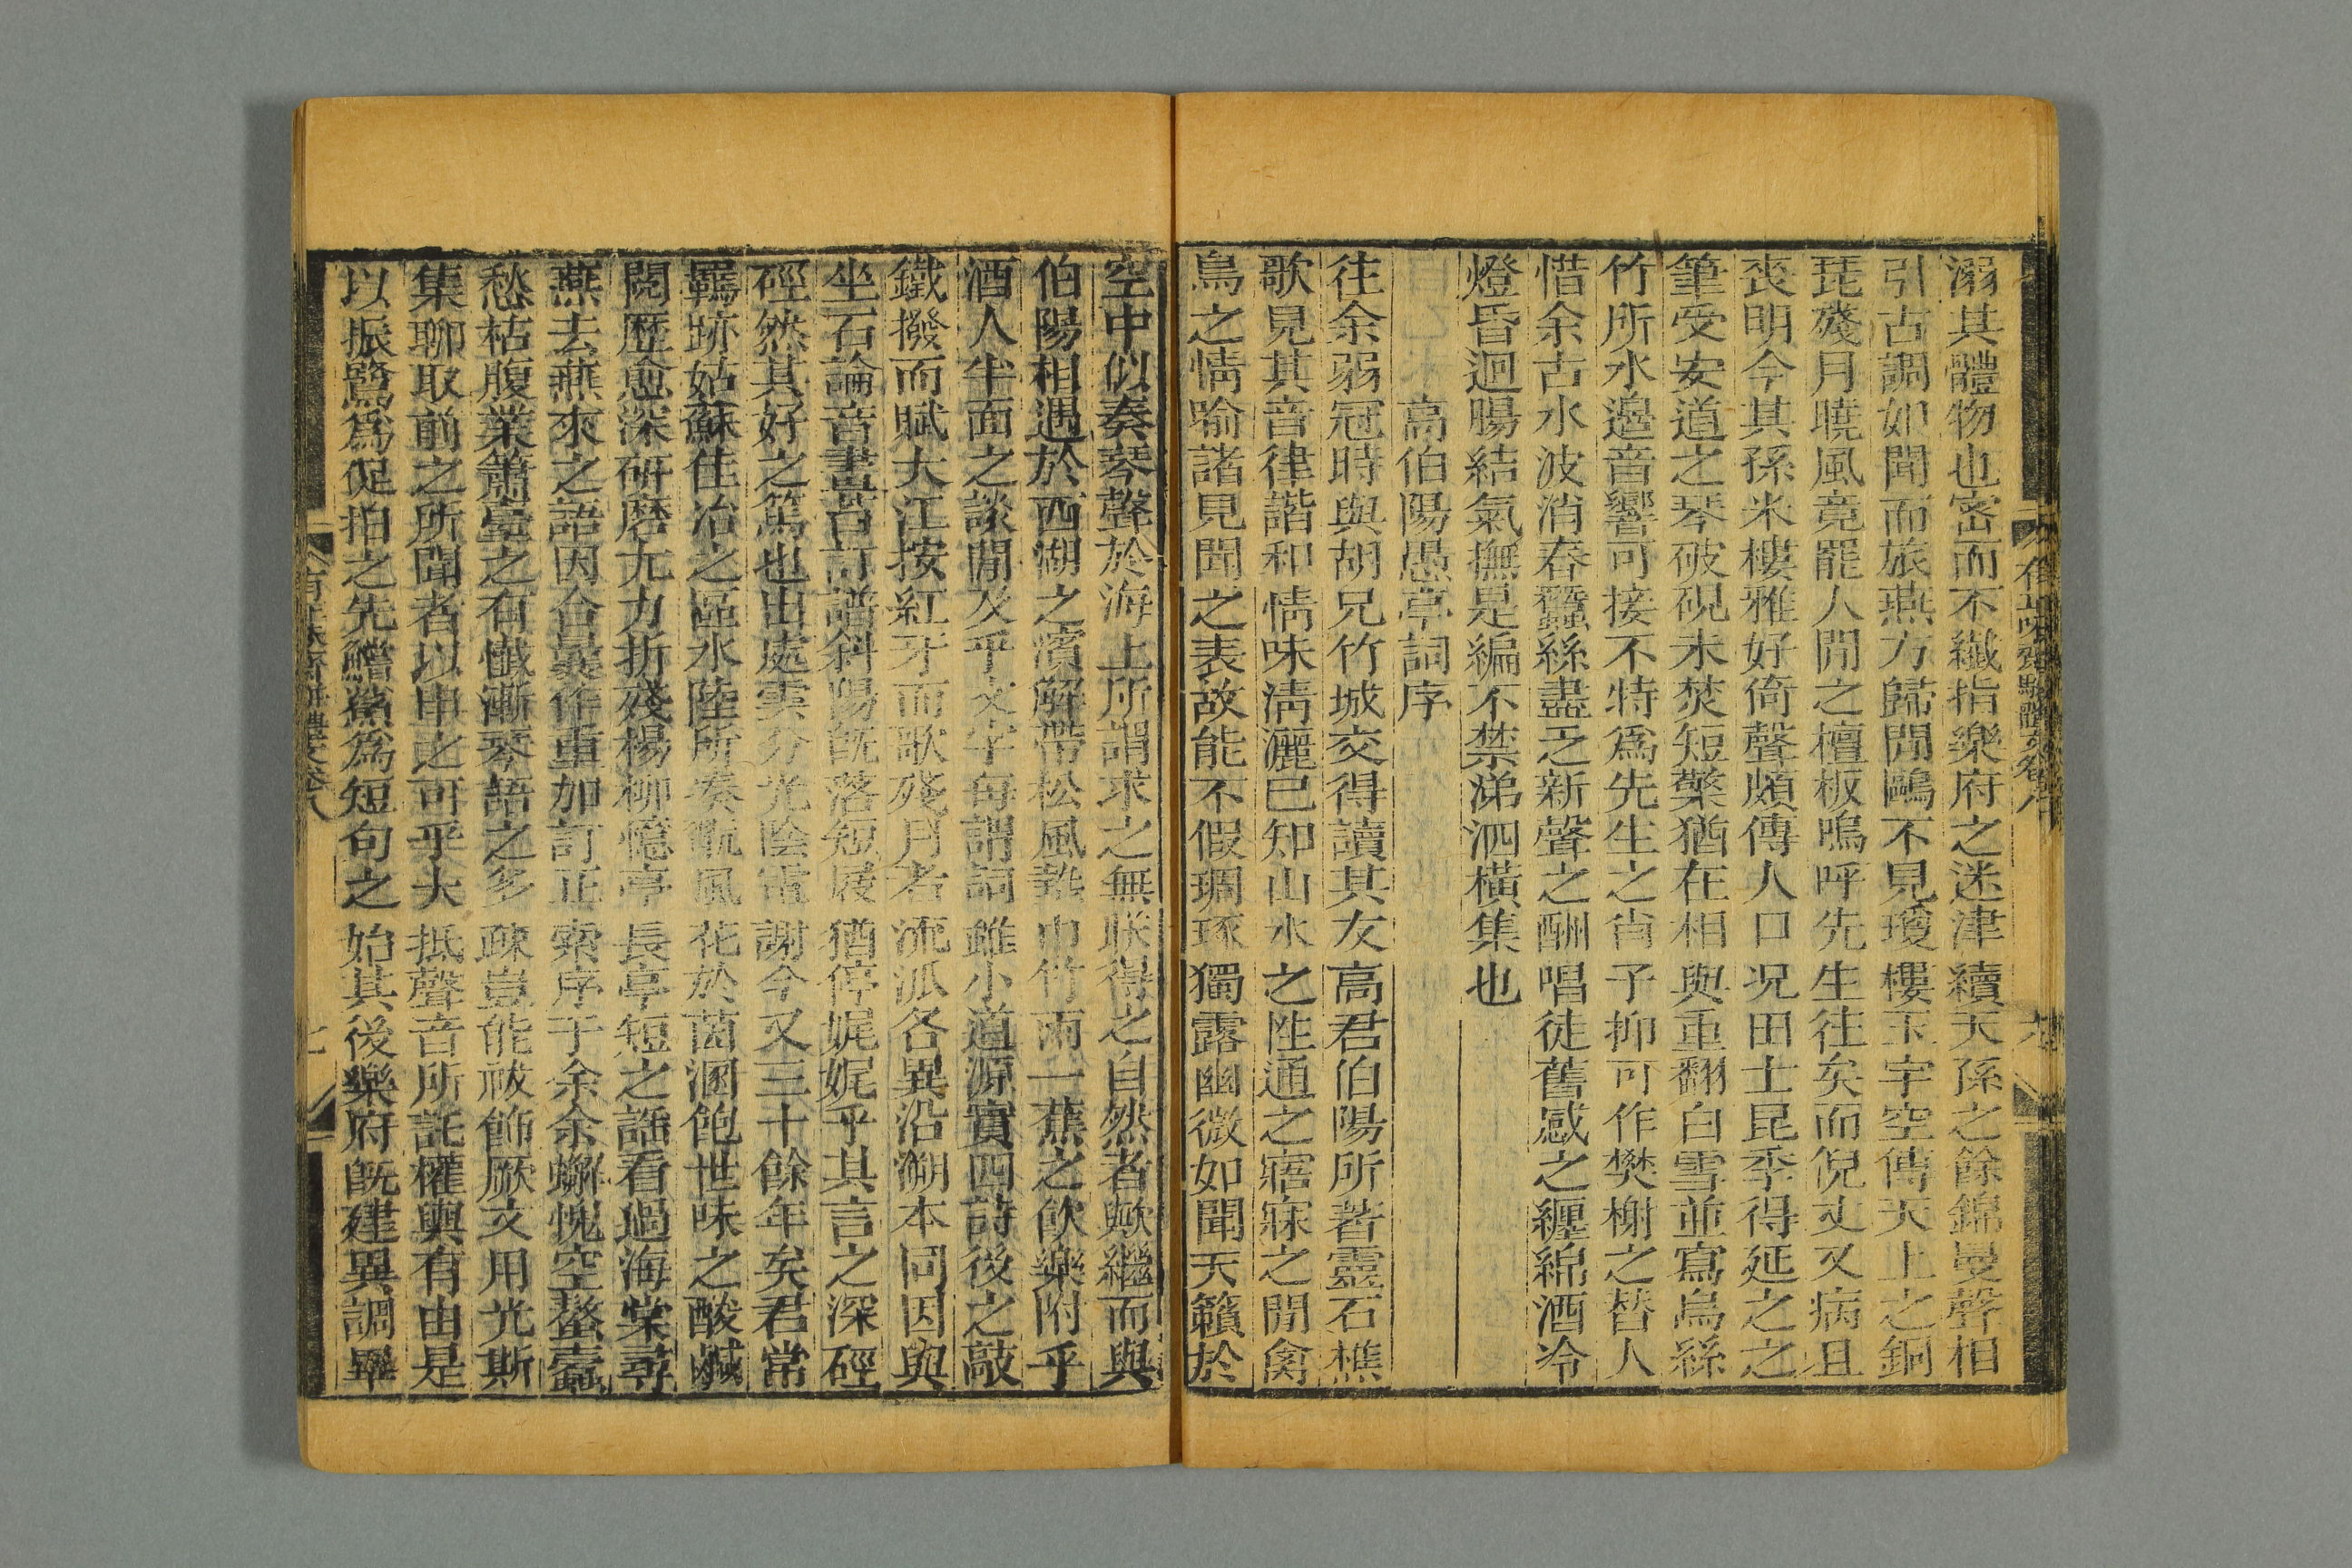 溺其體物也密而不纖指樂府之迷津續天孫之餘錦曼聲相
引古調如聞而旅燕方歸閒鷗不見瓊樓玉宇空傳天上之銅
琵殘月曉風竟罷人閒之檀板嗚呼先生往矣而倪𠀋又病且
喪明今其孫米樓雅好倚聲頗傳人口况田士昆季得延之之
筆受安道之琴破硯未焚短檠猶在相與重翻白雪並寫烏絲
竹所水邉音響可接不特爲先生之肖子抑可作樊榭之替人
惜余古水波消春蠶絲盡乏新聲之酬唱徒舊感之纏綿酒冷
燈昏迴腸結氣撫是編不禁涕泗橫集也
高伯陽愚亭詞序
往余弱冠時與胡兄竹城交得讀其友高君伯陽所著靈石樵
歌見其音律諧和情味淸灑已知山水之性通之寤寐之閒禽
鳥之情喻諸見聞之表故能不假琱琢獨露幽微如聞天籟於
空中似奏琴聲於海上所謂求之無朕得之自然者歟繼而與
伯陽相遇於西湖之濱解帶松風墊巾竹雨一蕉之飲樂附乎
酒人半面之談閒及乎文字每謂詞雖小道源實四詩後之敲
鐵撥而賦大江按紅牙而歌殘月者流派各異沿溯本同因與
坐石論音畫㫖訂譜斜陽旣落短屐猶停娓娓乎其言之深硜
硜然其好之篤也出處雲分光陰電謝今又三十餘年矣君常
羈跡姑蘇佳冶之區水陸所湊翫風花於茵溷飽世味之酸鹹
閱歷愈深硏磨尢力折殘楊柳憶亭長亭短之謡看過海棠尋
燕去燕來之語因合曩作重加訂正索序于余余嬾愧空螯蠹
愁枯腹業簫臺之有懺漸琴語之多疎豈能祓飾厥文用光斯
集聊取前之所聞者以申之可乎大抵聲音所託權輿有由是
以振鷺爲促拍之先鱨鯊爲短句之始其後樂府旣建異調畢